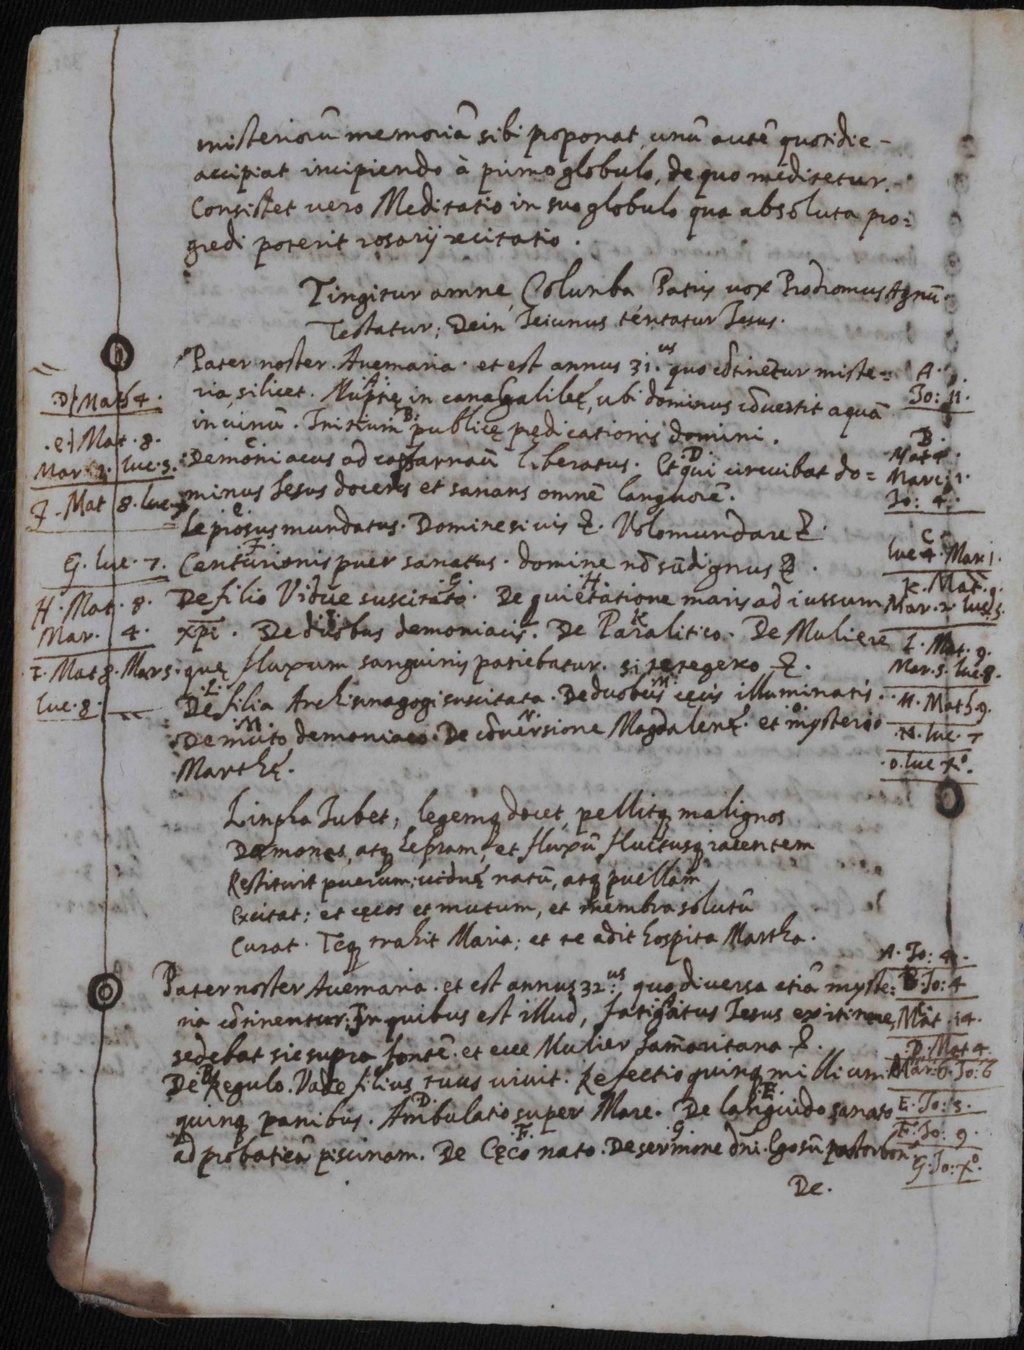 misteriorũ memoriã sibi proponat, unũ autẽ quotidie -
accipiat incipiendo à primo globulo, de quo meditetur.
Consistet vero Meditatio in suo globulo qua absoluta pro=
gredi poterit rosarij recitatio.
Tingitur amne, Columba Patris vox Prodromus Agnũ
Testatur; Dein Jeiunus tentatur Jesus.
Pater noster. Avemaria. et est annus 31.us quo cõtinẽtur miste=
ria, silicet. Nuptię in cana Galileę, ubi dominus cõvertit aquã
in vinũ. Initium publicę predicationis domini.
Demoniacus ad cafarnaũ liberatus. Et qui circuibat do=
minus Jesus docens et sanans omnẽ languorẽ.
Leprosus mundatus. Domine si vis &. Volo mundare &.
Centurionis puer sanatus. domine nõ sũ dignus &.
De filio Viduę suscitato. De quietatione maris ad iussum
xp̄i. De duobus demoniacis. De Paralitico. De Muliere
quę fluxum sanguinis patiebatur. si tetegero &.
De filia Archisinagogi suscitata. De duobus cęcis illuminatis.
De muto demoniaco. De cõversione Magdalenę. et mysterio
Marthę.
Limpha Jubet, legemq docet, pellitq malignos
Dæmones, atq Lepram, et fluxũ fluctusq iacentem
Restituit puerum; viduę natũ, atq puellam
Excitat; et cęcos et mutum, et membra solutũ
Curat. Teq trahit Maria; et te adit hospita Martha.
Pater noster Avemaria. et est annus 32.us quo diversa etiã myste=
ria cõtinentur. In quibus est illud, fatigatus Jesus ex itinere,
sedebat sic supra fontẽ. et ecce Mulier samaritana &.
De Regulo. Vade filius tuus vivit. Refectio quinq millium
quinq panibus. Ambulatio super Mare. De languido sanato
ad probaticã piscinam. De Cęco nato. De sermone dñi. Ego sũ pastor bon9
De.
D Math 4.
e Mat. 8.
Mar. luc. 5.
F. Mat 8. luc. 7
G. luc. 7.
H. Mat. 8.
Mar. 4.
I. Mat 8. Mar 5.
luc. 8.
A.
Jo: 11.
B.
Mat 4.
Marc. 1.
Jo: 4.
C.
luc 4. Mar 1.
K. Mat. 9.
Mar. 2. luc. 5.
L. Mat. 9.
Mar. 5. luc 8.
M. Math 9.
N. luc. 7
O. luc x°.
A. Jo: 4.
B. Jo: 4
C Mat. 14.
D. Mat 14
Mar: 6. Jo: 6
E. Jo: 5.
F. Jo: 9.
G. Jo: x°.